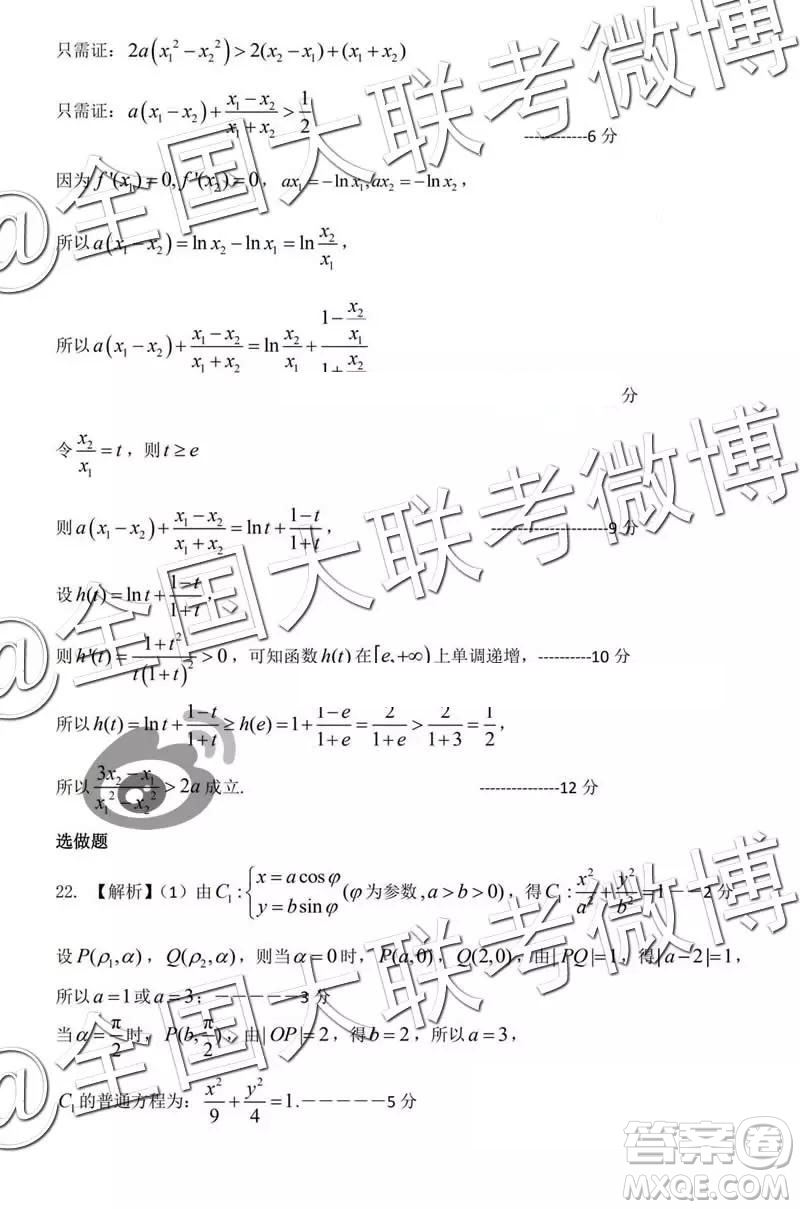 只需证：2a(x₁²−x₂²)>2(x₂−x₁)+(x₁+x₂)
只需证：a(x₁−x₂)+\frac{x₁−x₂}{x₁+x₂}>\frac{1}{2} ------------6 分
因为 f'(x₁)=0, f'(x₂)=0，ax₁=−ln x₁,ax₂=−ln x₂，
所以 a(x₁−x₂)=ln x₂−ln x₁=ln\frac{x₂}{x₁}，
所以 a(x₁−x₂)+\frac{x₁−x₂}{x₁+x₂}=ln\frac{x₂}{x₁}+\frac{1−\frac{x₂}{x₁}}{1+\frac{x₂}{}}
分
令\frac{x₂}{x₁}=t，则 t≥e
则 a(x₁−x₂)+\frac{x₁−x₂}{x₁+x₂}=ln t+\frac{1−t}{1+t}， --------------9 分
设 h(t)=ln t+\frac{1−t}{1+t}，
则 h'(t)=\frac{1+t²}{t(1+t)²}>0，可知函数 h(t) 在 [e,+∞) 上单调递增，----------10 分
所以 h(t)=ln t+\frac{1−t}{1+t}≥h(e)=1+\frac{1−e}{1+e}=\frac{2}{1+e}>\frac{2}{1+3}=\frac{1}{2}，
所以\frac{3x₂−x₁}{x₁²−x₂²}>2a 成立. ---------------12 分
选做题
22. 【解析】（1）由 C₁:{x=a cosφ y=b sinφ (φ 为参数,a>b>0)，得 C₁:\frac{x²}{a²}+\frac{y²}{b²}=1－－2 分
设 P(ρ₁,α)，Q(ρ₂,α)，则当 α=0 时，P(a,0)，Q(2,0)，由|PQ|=1，得|a−2|=1，
所以 a=1 或 a=3；－－－－－3 分
当 α=\frac{π}{2} 时，P(b,\frac{π}{2})，由|OP|=2，得 b=2，所以 a=3，
C₁ 的普通方程为：\frac{x²}{9}+\frac{y²}{4}=1.－－－－－5 分
@全国大联考微博
@全国大联考微博
@全国大联考微博
答案卷
MXQE.COM